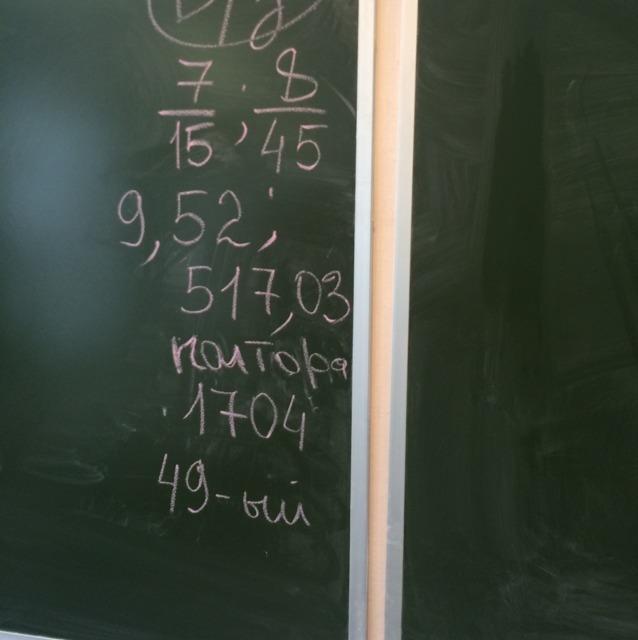 7/15; 8/45
9,52;
517,03
полтора
1704
49-ый